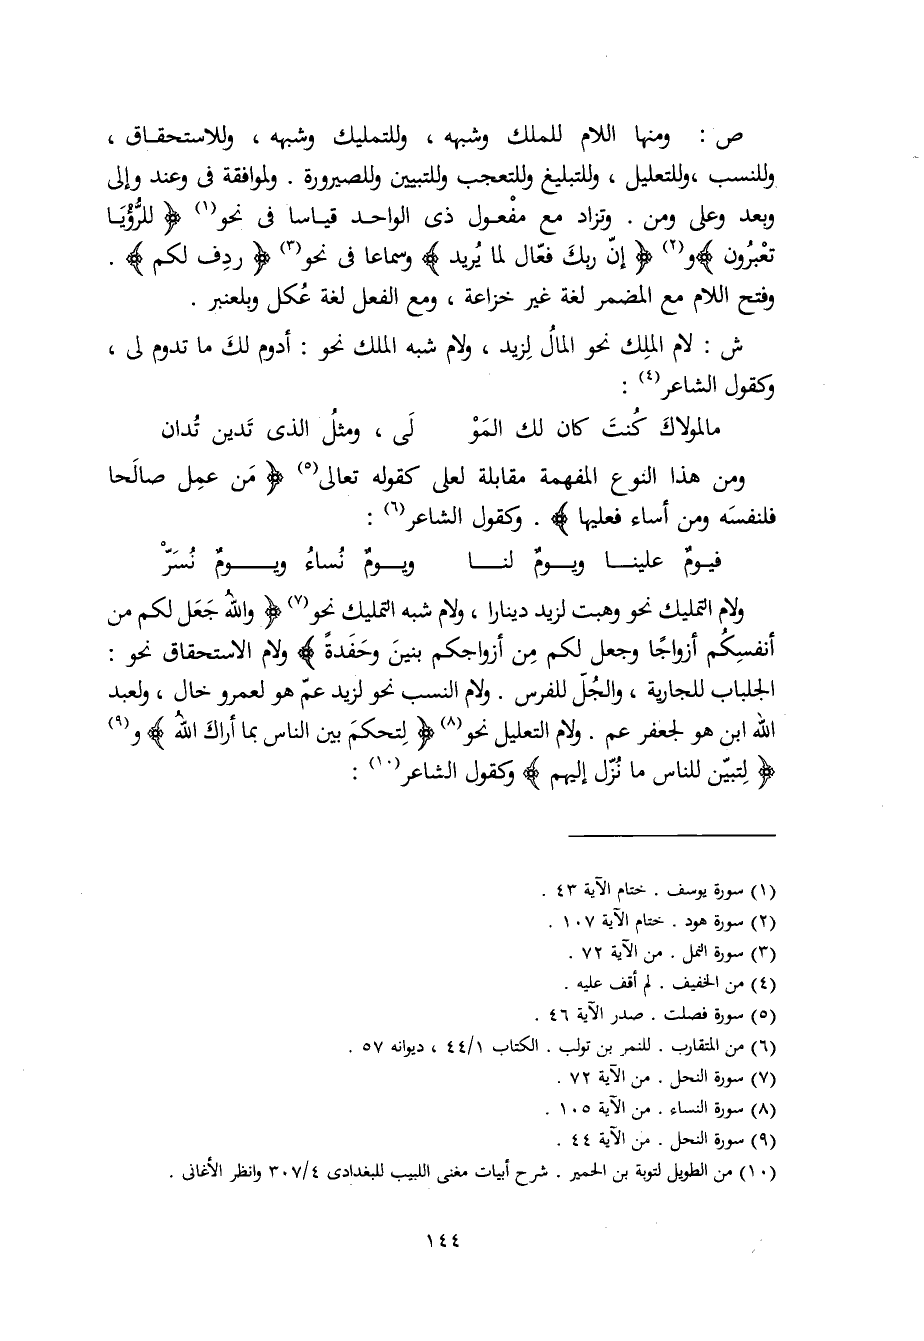 ص : ومنها اللام للملك وشبهه ، وللتمليك وشبهه ، وللاستحقـاق ،
وللنسب ،وللتعليل ، وللتبليغ وللتعجب وللتبيين وللصيرورة . ولموافقة فى وعند وإلى
وبعد وعلى ومن . وتزاد مع مفْعول ذى الواحد قياسا فى نحو(١) ﴿ للرُّؤْيَـا
تعْبُرُون ﴾و(٢) ﴿ إنّ ربكَ فعّال لما يُريد ﴾ وسماعا فى نحو(٣) ﴿ ردِف لكم ﴾ .
وفتح اللام مع المضمر لغة غير خزاعة ، ومع الفعل لغة عُكل وبلعنبر .
ش : لام الملِك نحو المالُ لِزيد ، ولام شبه الملك نحو : أدوم لكَ ما تدوم لى ،
وكقول الشاعر(٤) :
مالمولاكَ كُنتَ كان لك المَوْ لَى ، ومثلُ الذى تَدين تُدان
ومن هذا النوع المفهمة مقابلة لعلى كقوله تعالى(٥) ﴿ مَن عمِل صالَحا
فلنفسَه ومن أساء فعليها ﴾ . وكقول الشاعر(٦) :
فيـومٌ علينـــا ويــومٌ لنـــا ويــومٌ نُساءُ ويـــــومٌ نُسَرّْ
ولام التمليك نحو وهبت لزيد دينارا ، ولام شبه التمليك نحو(٧) ﴿ واللهُ جَعَل لكم من
أنفسِكُم أزواجًا وجعل لكم مِن أزواجكم بنينَ وحَفَدةً ﴾ ولام الاستحقاق نحو :
الجلباب للجارية ، والجُلّ للفرس . ولام النسب نحو لزيد عمّ هو لعمرو خال ، ولعبد
الله ابن هو لجعفر عم . ولام التعليل نحو(٨) ﴿ لِتحكمَ بين الناس بما أراكَ اللهُ ﴾ و(٩)
﴿ لِتبيّن للناس ما نُزّل إليهم ﴾ وكقول الشاعر(١٠) :
(١) سورة يوسف . ختام الآية ٤٣ .
(٢) سورة هود . ختام الآية ١٠٧ .
(٣) سورة النمل . من الآية ٧٢ .
(٤) من الخفيف . لم أقف عليه .
(٥) سورة فصلت . صدر الآية ٤٦ .
(٦) من المتقارب . للنمر بن تولب . الكتاب ٤٤/١ ، ديوانه ٥٧ .
(٧) سورة النحل . من الآية ٧٢ .
(٨) سورة النساء . من الآية ١٠٥ .
(٩) سورة النحل . من الآية ٤٤ .
(١٠) من الطويل لتوبة بن الحمير . شرح أبيات مغنى اللبيب للبغدادى ٣٠٧/٤ وانظر الأغانى .
١٤٤